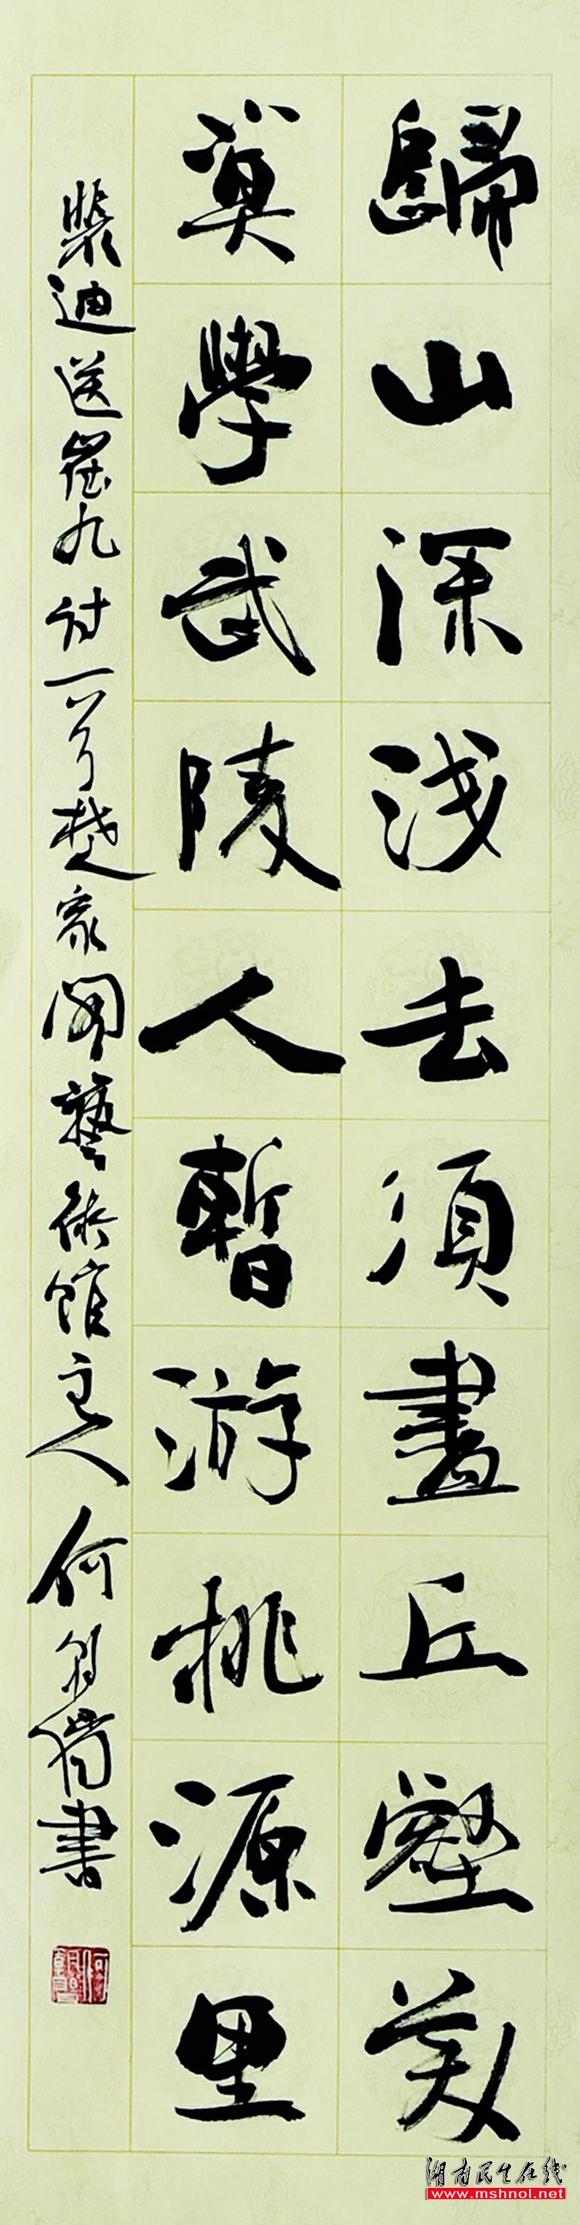 歸山深淺去須盡丘壑美
莫學武陵人暫游桃源里
裴迪送崔九詩一首楚家閣藝術館主人何書
湖南民生在线
www.mshnol.net